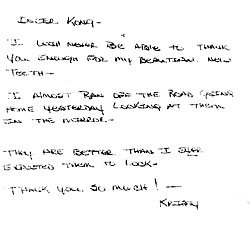 KONG -
I WILL NEVER BE ABLE TO THANK
YOU ENOUGH FOR MY BEAUTIFUL NEW
TEETH -
I ALMOST RAN OFF THE ROAD GOING
HOME YESTERDAY LOOKING AT THEM
IN THE MIRROR -
THEY ARE BETTER THAN I EVER
EXPECTED THEM TO LOOK -
THANK YOU SO MUCH! -
KRISTY